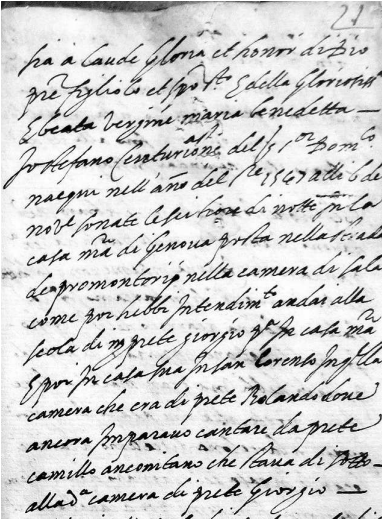 21
sia à laude Gloria et honor di Dio
pre figliolo et spo sto E della Gloriosiss
E beata vergine maria benedetta
Jo stefano Centurione del s or Dom co
nacqui nell'año del s re 1547 alli 6 de
nov e sonate le sei hore di notte in la
casa ma di Genova posta nella strada
de promontorij nella camera di sala
come poi hebbi Intendim to andai alla
scola di m prete giorgio pa In casa ma
E poi In casa sua In san lorenzo In qlla
camera che era di prete Rolando dove
ancora Imparavo cantare da prete
camillo anconitano che stava di
alla da camera di prete Giorgio